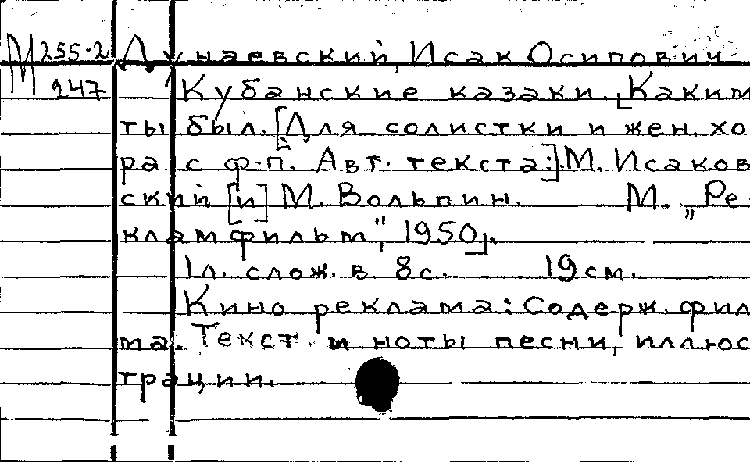 М 255-2 Дунаевский, Исак Осипович
247 Кубанские казаки. [Каким
ты был. [Для солистки и жен. хо
ра с ф-п. Авт. текста:] М. Исаков
ский [и] М. Вольпин. М. „Ре
кламфильм", 1950].
1л. слож. в 8с. 19см.
Кино реклама: Содерж. фил
ма. Текст и ноты песни, иллюс
трации.